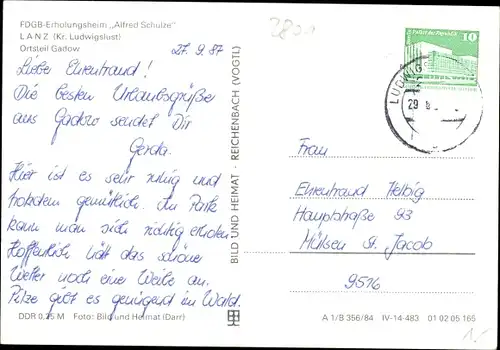 FDGB-Erholungsheim „Alfred Schulze"
LANZ (Kr. Ludwigslust)
Ortsteil Gadow
27.9.87
Liebe Ehrentraud!
Die besten Urlaubsgrüße
aus Gadow sendet Dir
Gerda.
Hier ist es sehr ruhig und
trotzdem gemütlich. Im Park
kann man sich richtig erholen.
Hoffentlich hält das schöne
Wetter noch eine Weile an.
Pilze gibt es genügend im Wald.
DDR 0,25 M Foto: Bild und Heimat (Darr)
BILD UND HEIMAT · REICHENBACH (VOGTL)
10
LUDWIGS
29
Frau
Ehrentraud Helbig
Hauptstraße 93
Mülsen St. Jacob
9516
A 1/B 356/84 IV-14-483 01 02 05 165
1.-